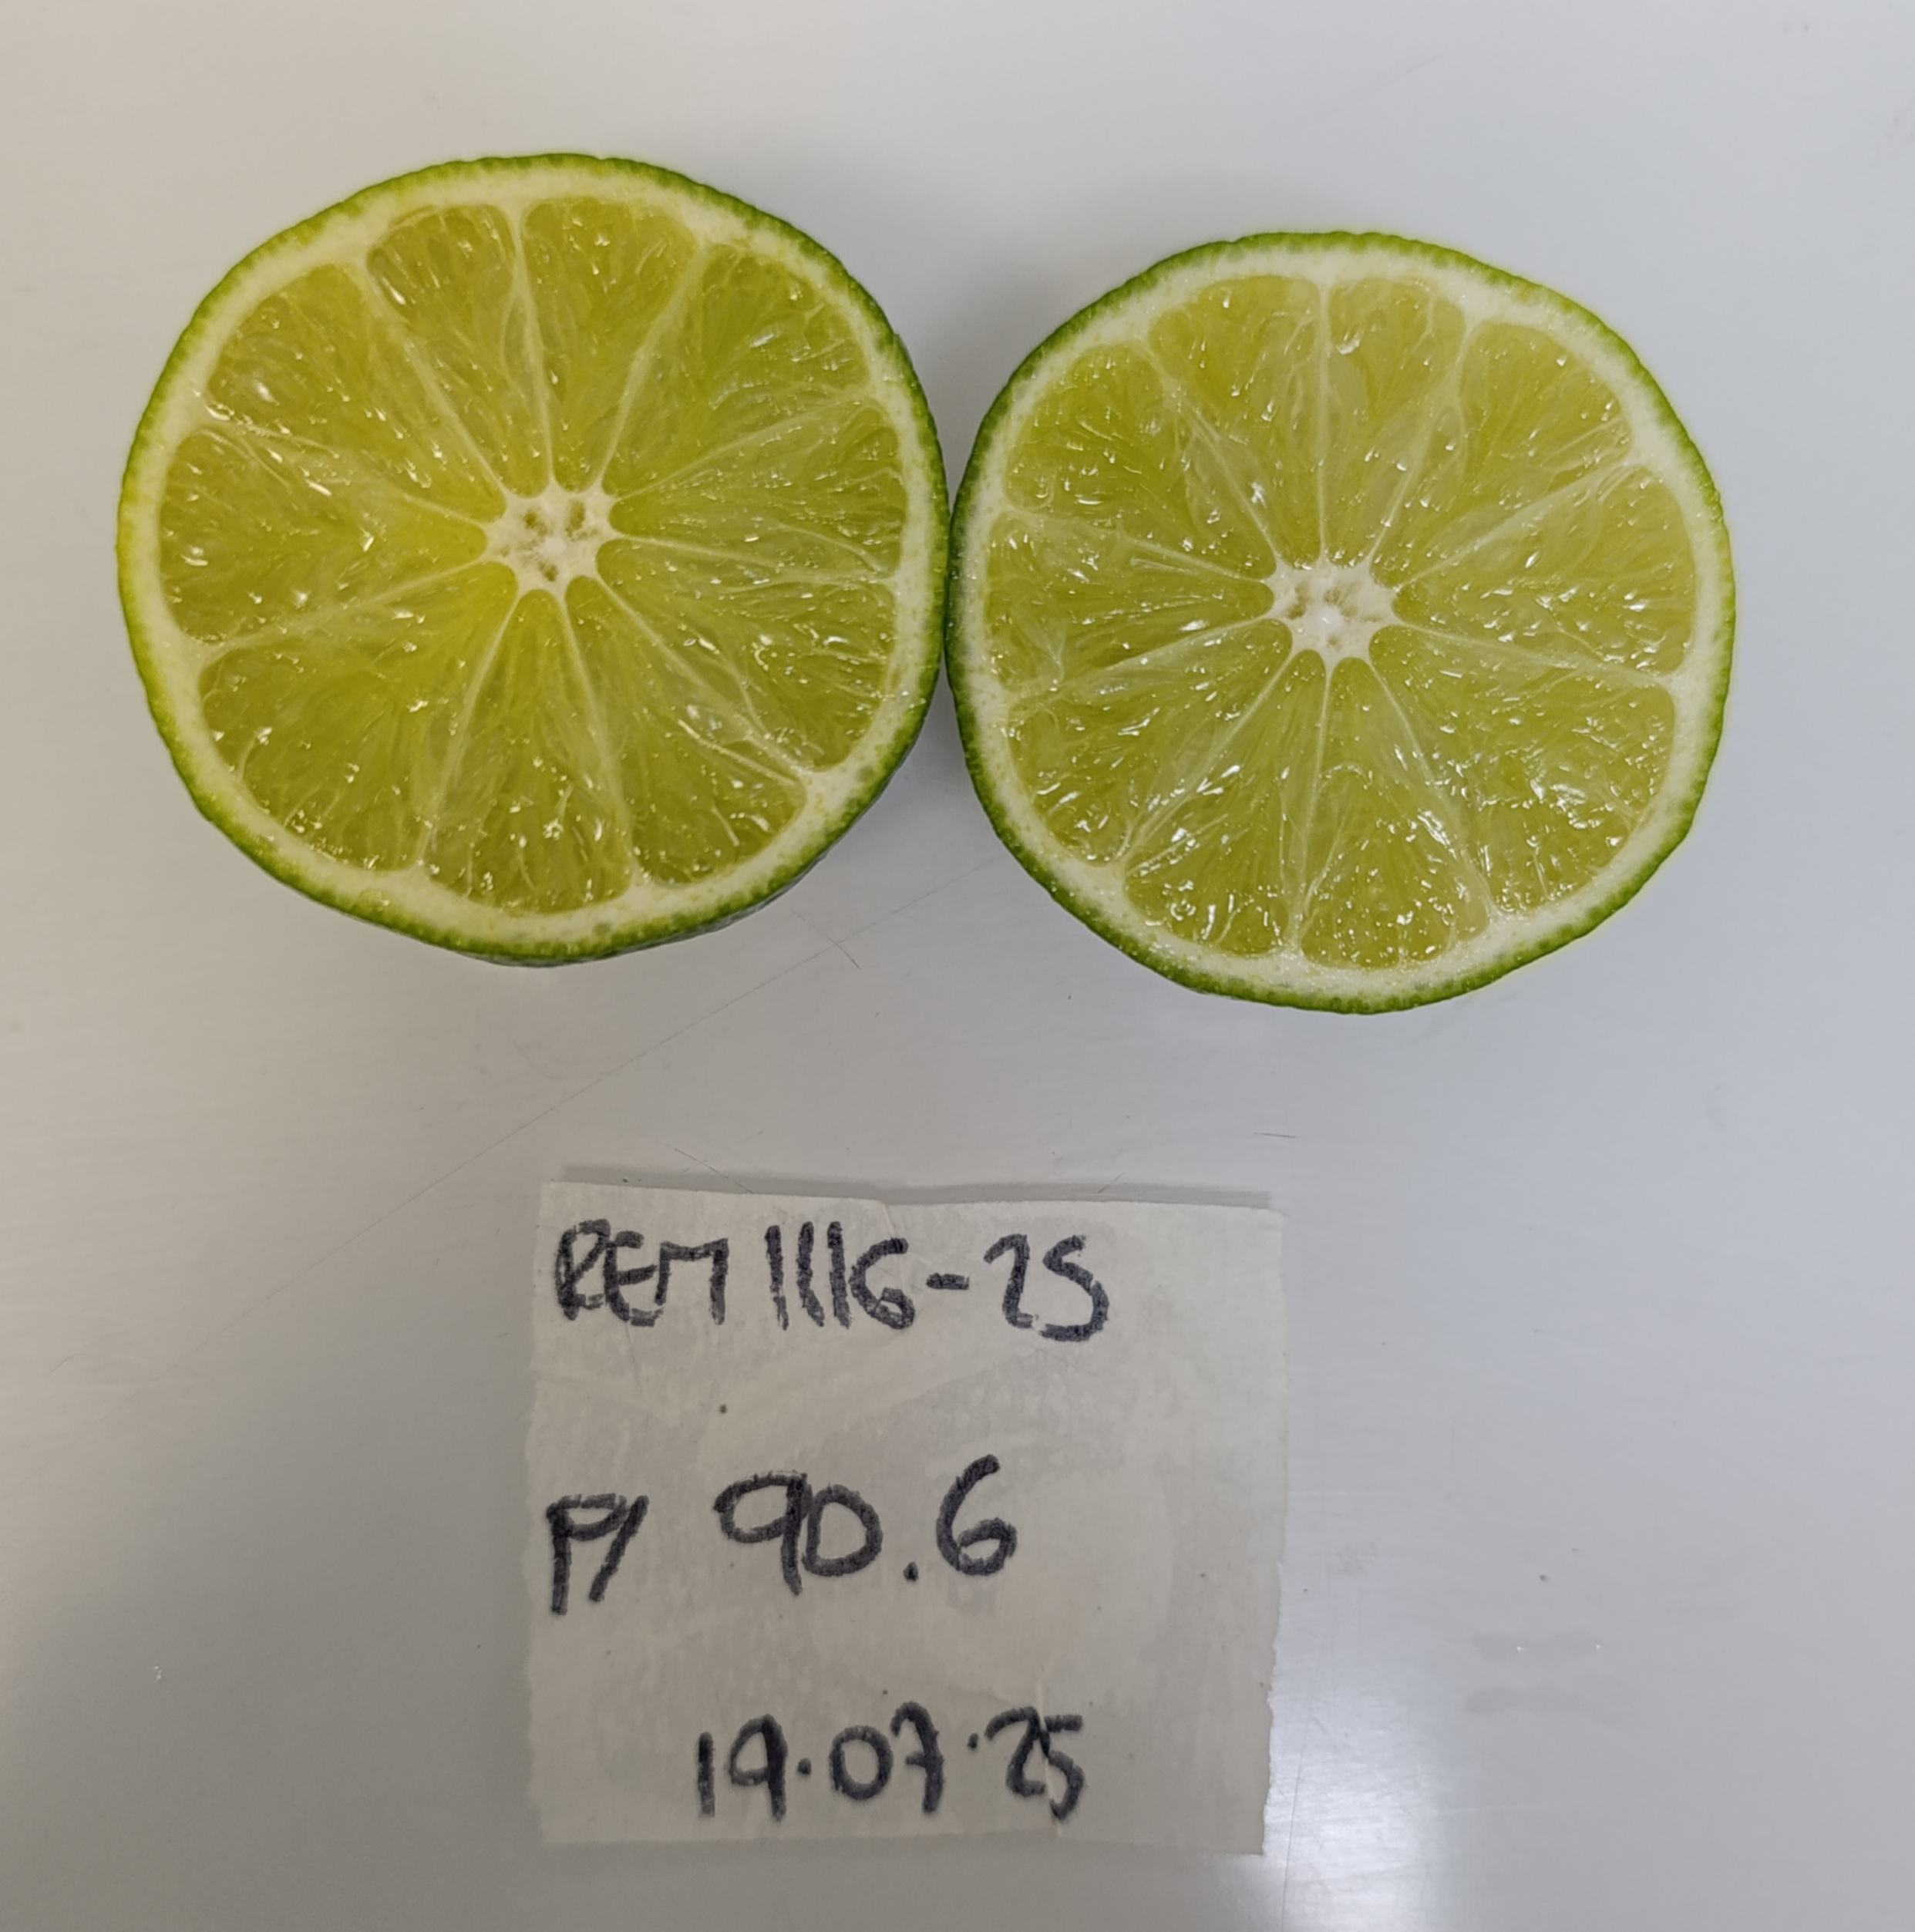 REM 1116-25
P/ 90.6
19.07.25